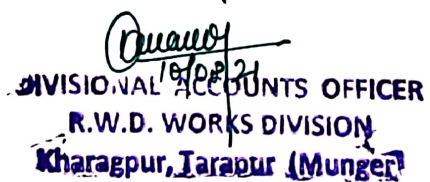 10/08/21
DIVISIONAL ACCOUNTS OFFICER
R.W.D. WORKS DIVISION
Kharagpur, Tarapur (Munger)